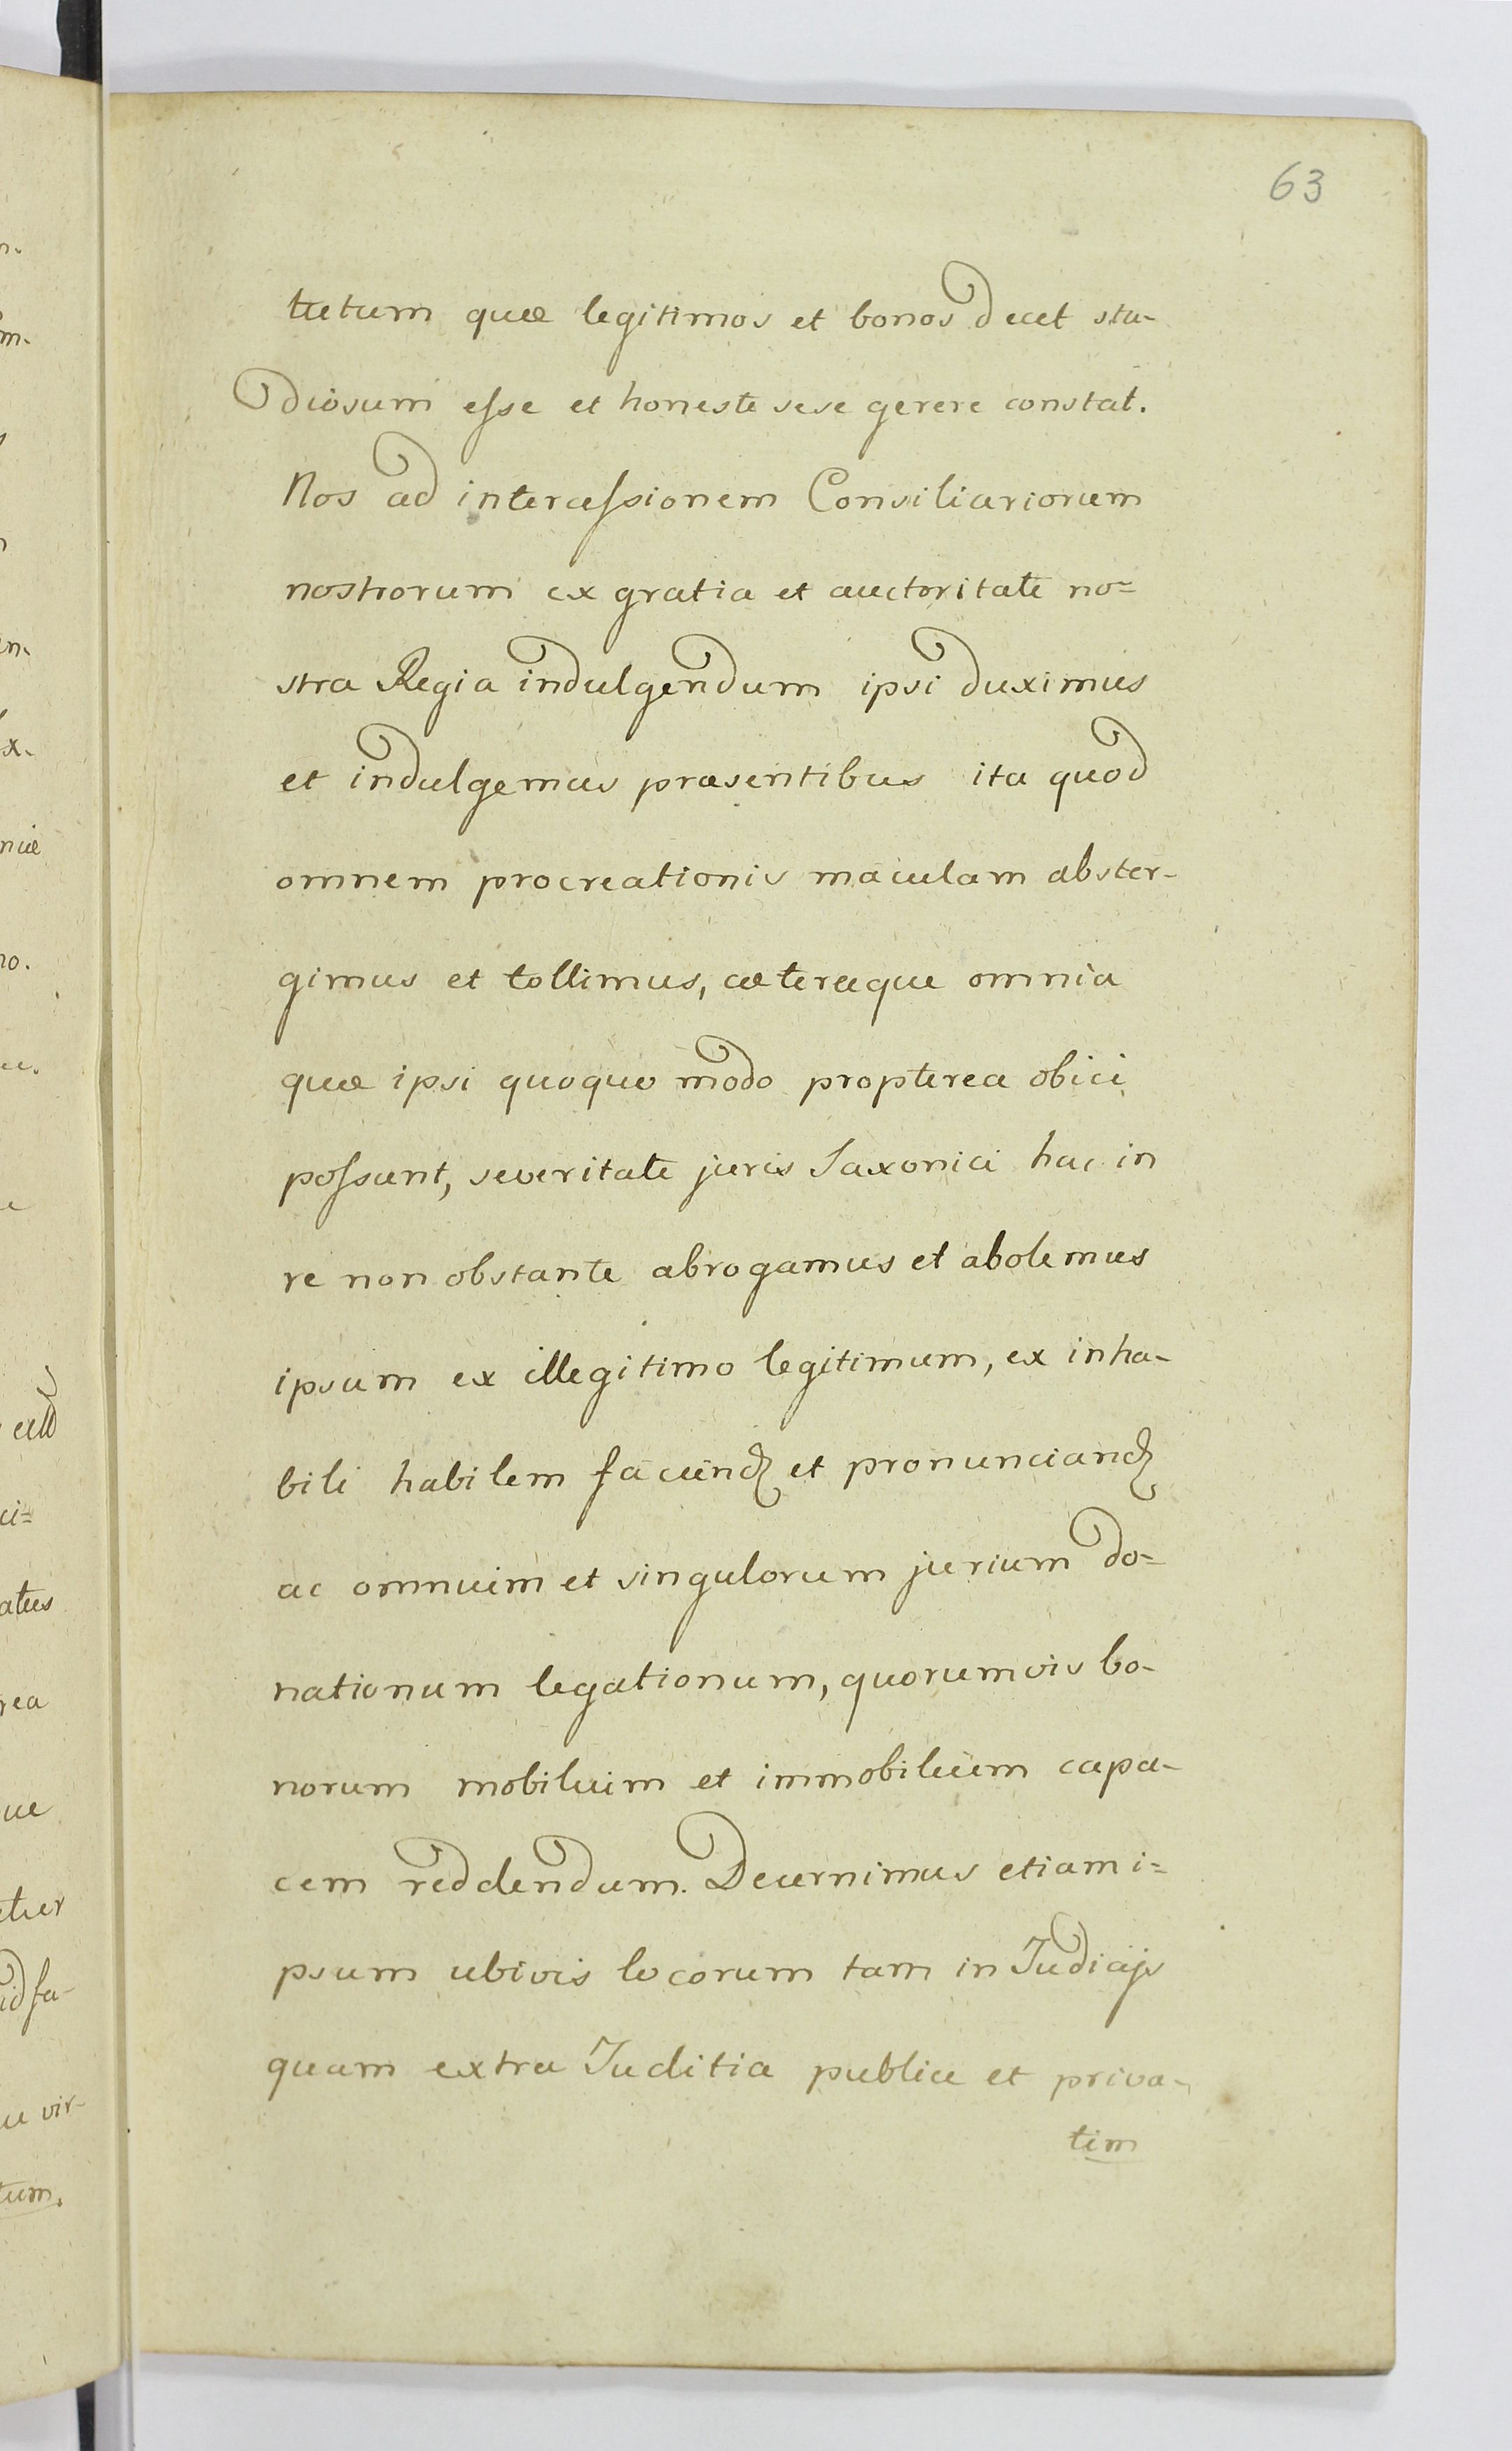 63
tutum quæ legitimos et bonos decet stu-
diosum esse et honeste sese gerere constat.
Nos ad intercessionem Consiliariorum
nostrorum ex gratia et auctoritate no=
stra Regia indulgendum ipsi duximus
et indulgemus præsentibus ita quod
omnem procreationis maculam abster-
gimus et tollimus, cæteraque omnia
quæ ipsi quoquo modo propterea obici
possunt, severitate juris Saxonici hac in
re non obstante abrogamus et abolemus
ipsum ex illegitimo legitimum, ex inha-
bili habilem faciend et pronunciand
ac omnium et singulorum jurium do=
nationum legationum, quorumvis bo-
norum mobilium et immobilium capa-
cem reddendum. Decernimus etiam i=
psum ubivis locorum tam in Judicijs
quam extra Juditia publice et priva-
tim